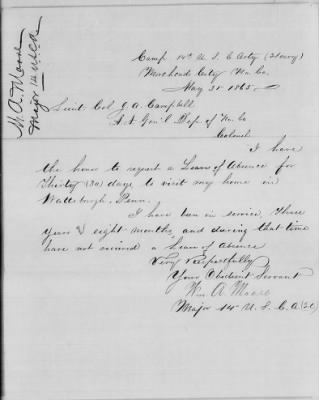 M. A. Moore
Major 14 U.S.C.A
Camp 14th U. S. C Arty (Heavy)
Morehead City No. Co.
May 31st 1865
Lieut. Col. J. A. Campbell
A. A Gen'l Dep. of No. Co
Colonel
I have
the honor to request a Leave of Absence for
Thirty (30) days to visit my home in
Wattsburgh, Penn.
I have been in service, Three
years & eight months, and during that time
have not received a Leave of Absence
Very Respectfully
Your Obedient Servant
Wm A. Moore
Major 14th U. S. C. A